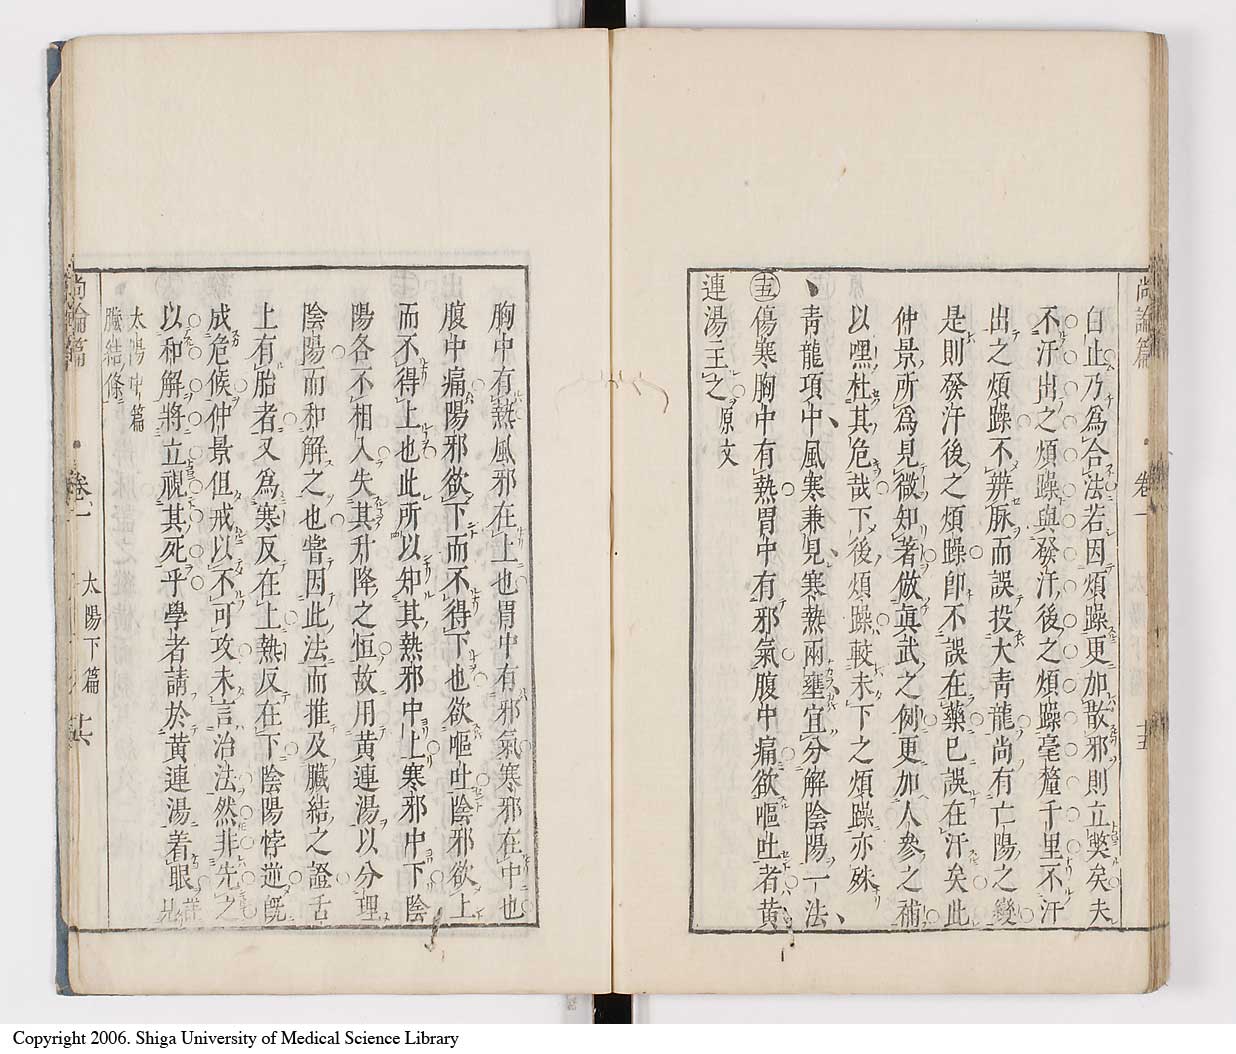 尚論篇 卷一 十五
自止乃爲合法若因煩躁更加散邪則立斃矣夫
不汗出之煩躁與發汗後之煩躁毫釐千里不汗
出之煩躁不辨脉而誤投大青龍尚有亡陽之變
是則發汗後之煩躁卽不誤在藥已誤在汗矣此
仲景所爲見微知著倣眞武之例更加人參之補
以嘿杜其危哉下後煩躁較未下之煩躁亦殊
青龍項中風寒兼見寒熱兩壅宜分解陰陽一法
㊄傷寒胸中有熱胃中有邪氣腹中痛欲嘔吐者黃
連湯主之原文
胸中有熱風邪在上也胃中有邪氣寒邪在中也
腹中痛陽邪欲下而不得下也欲嘔吐陰邪欲上
而不得上也此所以知其熱邪中上寒邪中下陰
陽各不相入失其升降之恒故用黃連湯以分理
陰陽而和解之也嘗因此法而推及臟結之證舌
上有胎者又爲寒反在上熱反在下陰陽悖逆旣
成危候仲景但戒以不可攻未言治法然非先之
以和解將立視其死乎學者請於黃連湯着眼
太陽中篇
臟結條
尚論篇 卷一 太陽下篇 十六
Copyright 2006. Shiga University of Medical Science Library